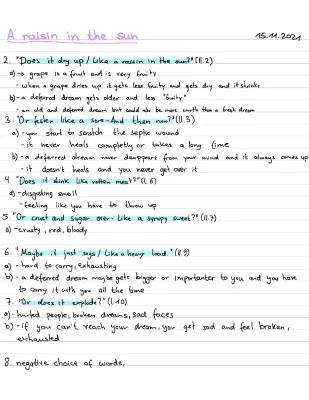 A raisin in the sun 15.11.2021
2. "Does it dry up / Like a raisin in the sun?" (ll.2)
a) - a grape is a fruit and is very fruity
- when a grape dries up it gets less fruity and gets dry and it shrinks
b) - a deferred dream gets older and less "fruity"
- an old and deferred dream but could also be more worth than a fresh dream
3. "Or fester like a sore - And then run?" (ll.3)
a) - you start to scratch the septic wound
- it never heals completly or takes a long time
b) - a deferred dream never disappears from your mind and it always comes up
- it doesn't heals and you never get over it
4. "Does it stink like rotten meat?" (l.6)
a) - disgusting smell
- feeling like you have to throw up
5. "Or crust and sugar over - Like a syrupy sweet?" (ll.7)
a) - crusty, red, bloody
6. "Maybe it just sags / Like a heavy load." (ll.9)
a) - hard to carry, exhausting
b) - a deferred dream maybe gets bigger or importanter to you and you have
to carry it with you all the time
7. "Or does it explode?" (l.10)
a) - hurted people, broken dreams, sad faces
b) - if you can't reach your dream, you get sad and feel broken,
exhausted
8. negative choice of words.